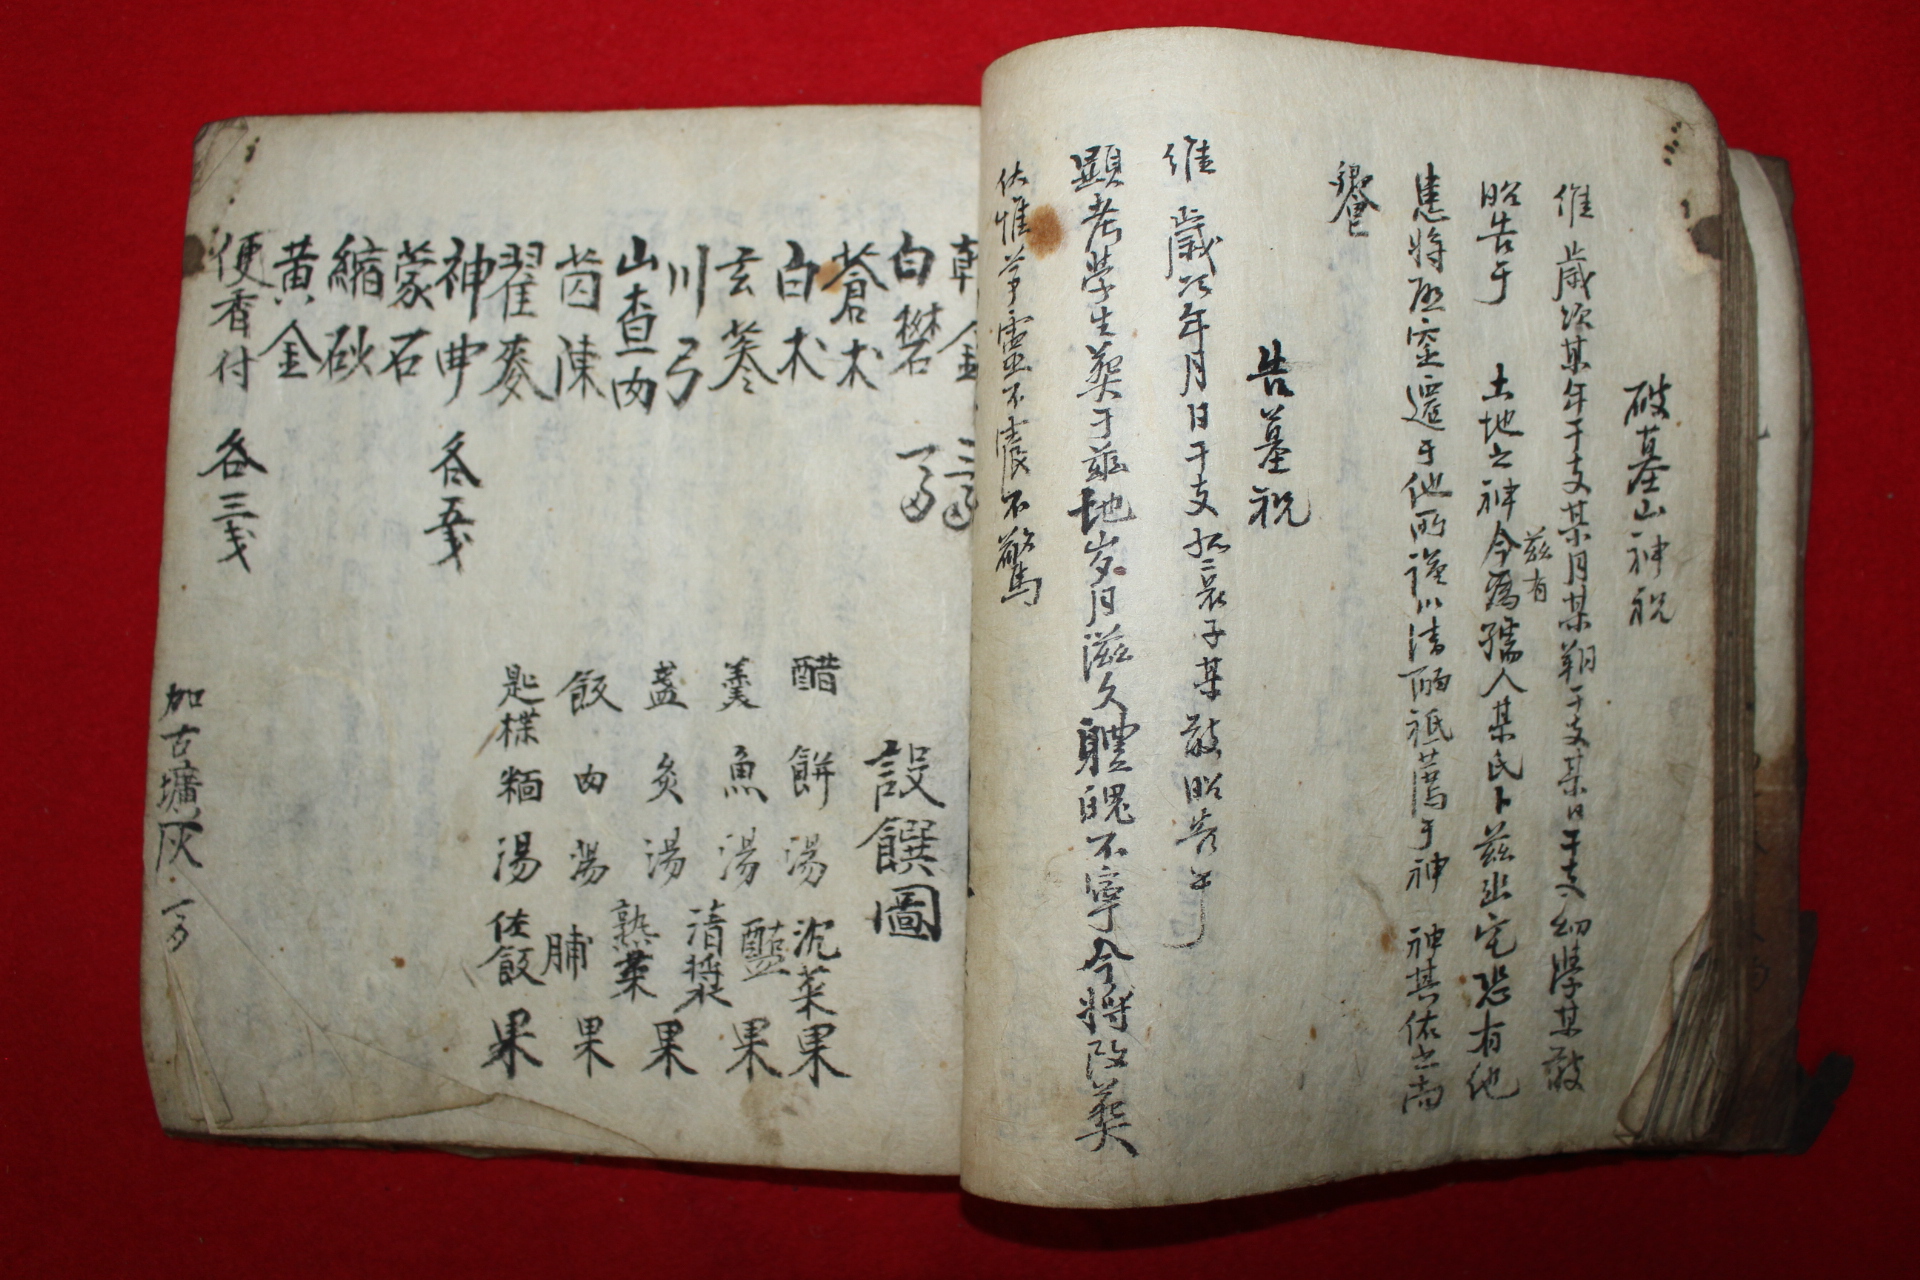 破墓山神祝
維 歲次某年干支某月某朔干支某日干支幼學某敢
昭告于 土地之神今爲孺人某氏卜玆出宅恐有他
玆有
患將啓窆遷于他所謹以淸酌祗薦于神 神其佑之尙
饗
告墓祝
維 歲次年月日干支孤哀子某 敢昭告于
顯考學生葬于玆地岁月滋久體魄不寧今將改葬
伏惟尊靈不震不驚
白礬
蒼朮
白朮
玄蔘
川弓
山查肉
茵陳
瞿麥
神曲 各五戔
蒙石
縮砂
黄金
便香付 各三戔
設饌圖
醋 餠 湯 沉菜 果
羹 魚 湯 醢 淸醬 果
盞 炙 湯 熟菜 果
飯 肉 湯 脯 果
匙楪 糆 湯 佐飯 果
加古壙灰